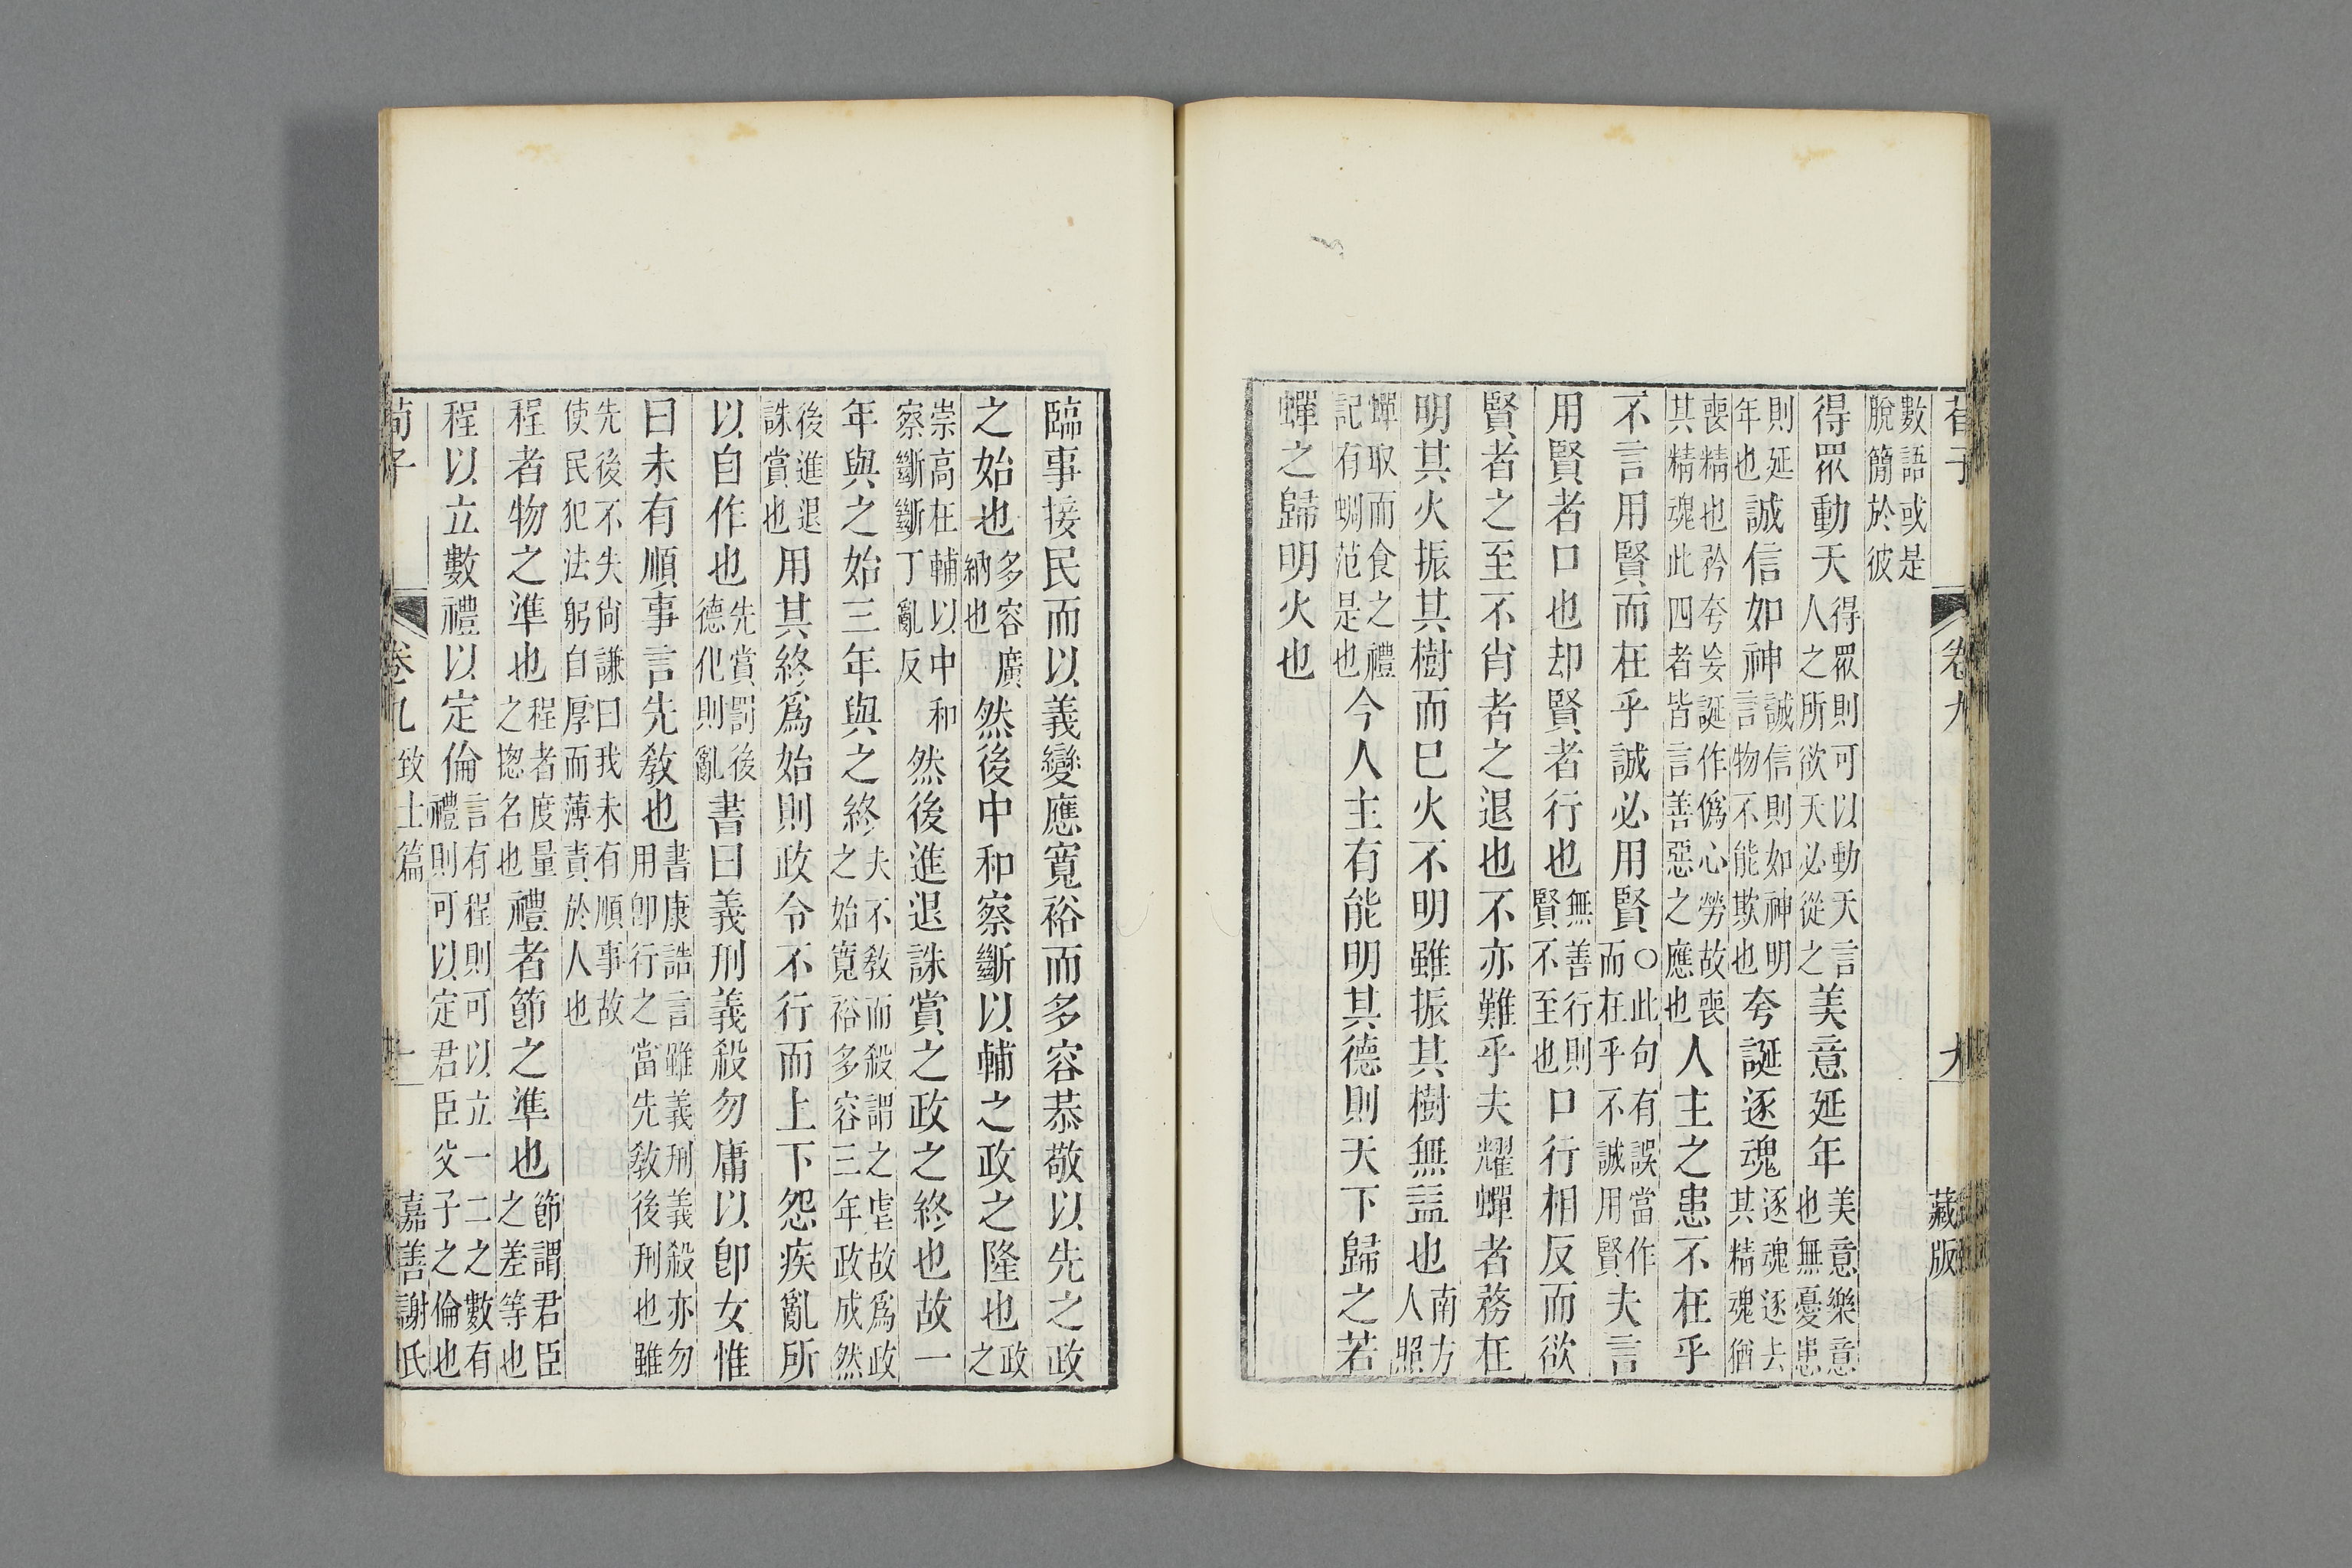 荀子　卷九　藏版
數語或是脫簡於彼
得眾動天得眾則可以動天言人之所欲天必從之美意延年美意樂意也無憂患
則延年也誠信如神誠信則如神明言物不能欺也夸誕逐魂逐魂逐去其精魂猶
喪精也矜夸妄誕作僞心勞故喪其精魂此四者皆言善惡之應也人主之患不在乎
不言用賢而在乎誠必用賢○此句有誤當作而在乎不誠用賢夫言
用賢者口也却賢者行也無善行則賢不至也口行相反而欲
賢者之至不肖者之退也不亦難乎夫耀蟬者務在
明其火振其樹而已火不明雖振其樹無益也南方人照
蟬取而食之禮記有蜩范是也今人主有能明其德則天下歸之若
蟬之歸明火也
臨事接民而以義變應寬裕而多容恭敬以先之政
之始也多容廣納也然後中和察斷以輔之政之隆也政之
崇高在輔以中和察斷斷丁亂反然後進退誅賞之政之終也故一
年與之始三年與之終夫不教而殺謂之虐故爲政之始寬裕多容三年政成然
後進退誅賞也用其終爲始則政令不行而上下怨疾亂所
以自作也先賞罰後德化則亂書曰義刑義殺勿庸以卽女惟
曰未有順事言先教也書康誥言雖義刑義殺亦勿用卽行之當先教後刑也雖
先後不失尚謙曰我未有順事故使民犯法躬自厚而薄責於人也
程者物之準也程者度量之揔名也禮者節之準也節謂君臣之差等也
程以立數禮以定倫言有程則可以立一二之數有禮則可以定君臣父子之倫也
荀子　卷九　致士篇　十　嘉善謝氏